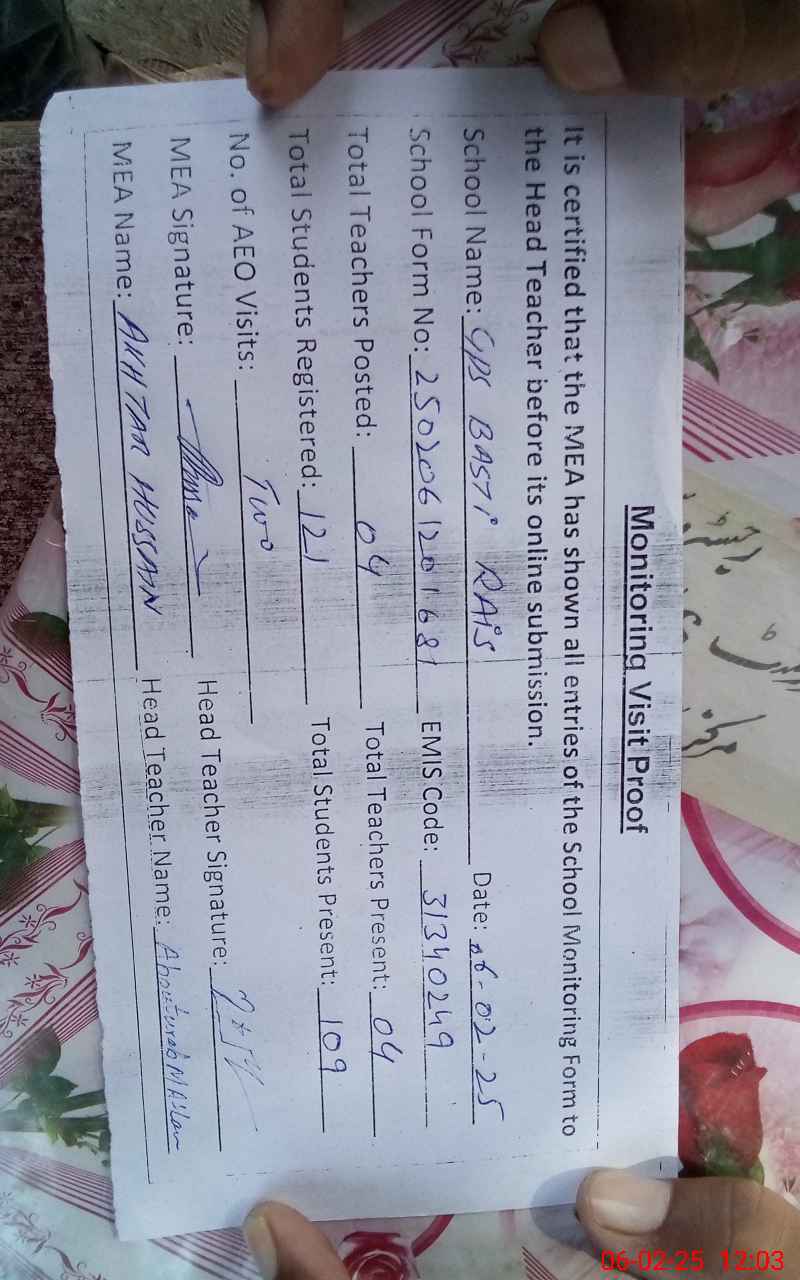 Monitoring Visit Proof
It is certified that the MEA has shown all entries of the School Monitoring Form to
the Head Teacher before its online submission.
School Name: GPS BASTi RAiS Date: 06-02-25
School Form No: 2502061201681 EMIS Code: 31340249
Total Teachers Posted: 04 Total Teachers Present: 04
Total Students Registered: 121 Total Students Present: 109
No. of AEO Visits: Two
MEA Signature: Head Teacher Signature:
MEA Name: AKHTAR HUSSAIN Head Teacher Name:
06-02-25 12:03